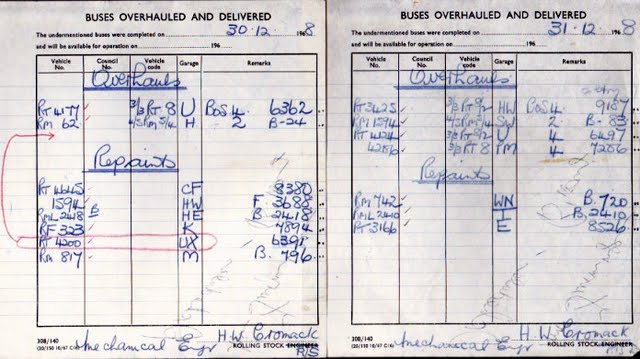 BUSES OVERHAULED AND DELIVERED
The undermentioned buses were completed on 30.12. 1968
and will be available for operation on 196
Vehicle No. Council No. Vehicle code Garage Remarks
Overhauls
RT 4177 3/3 RT 8 U BOS 4. 6362
RM 62 4/5 RM 5/4 H 2 B-24
Repaints
RT 4645 CF 8380
1594 HW F. 3688
RML 2418 B HE B. 2418
RF 323 K 7894
RT 4200 UX 6391
RM 817 M B. 796
Mechanical Engr H.W. Cromack
30B/140
ROLLING STOCK ENGINEER
R/S
BUSES OVERHAULED AND DELIVERED
The undermentioned buses were completed on 31.12. 1968
and will be available for operation on 196
Vehicle No. Council No. Vehicle code Garage Remarks
Overhauls
RT 3425 HW BOS 4. 9157
RM 1594 SW 2. B-83
RT 4124 U 4 6497
4286 3/3 RT 8 PM 4 7286
Repaints
RM 742 WN B. 720
RML 2410 I B. 2410
RT 3166 E 8526
Mechanical Engr H.W. Cromack
30B/140
ROLLING STOCK ENGINEER
R/S